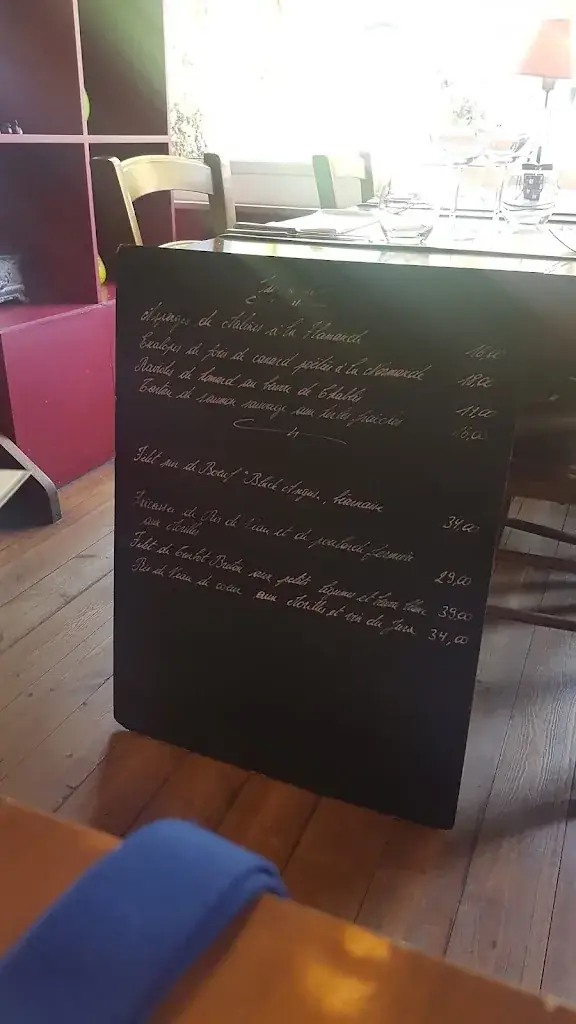 Asperges de Malines à la Flamande 16,00
Escalopes de foie de canard poêlées à la Normande 18,00
Ravioles de homard au beurre de Chablis 17,00
Tartare de saumon sauvage aux herbes fraîches 16,00
Filet pur de Boeuf "Black Angus", béarnaise 34,00
Fricassée de Ris de Veau et de poularde fermière
aux Morilles 29,00
Filet de Turbot Breton aux petits légumes et beurre blanc 39,00
Ris de Veau de coeur aux Morilles et vin du Jura 34,00